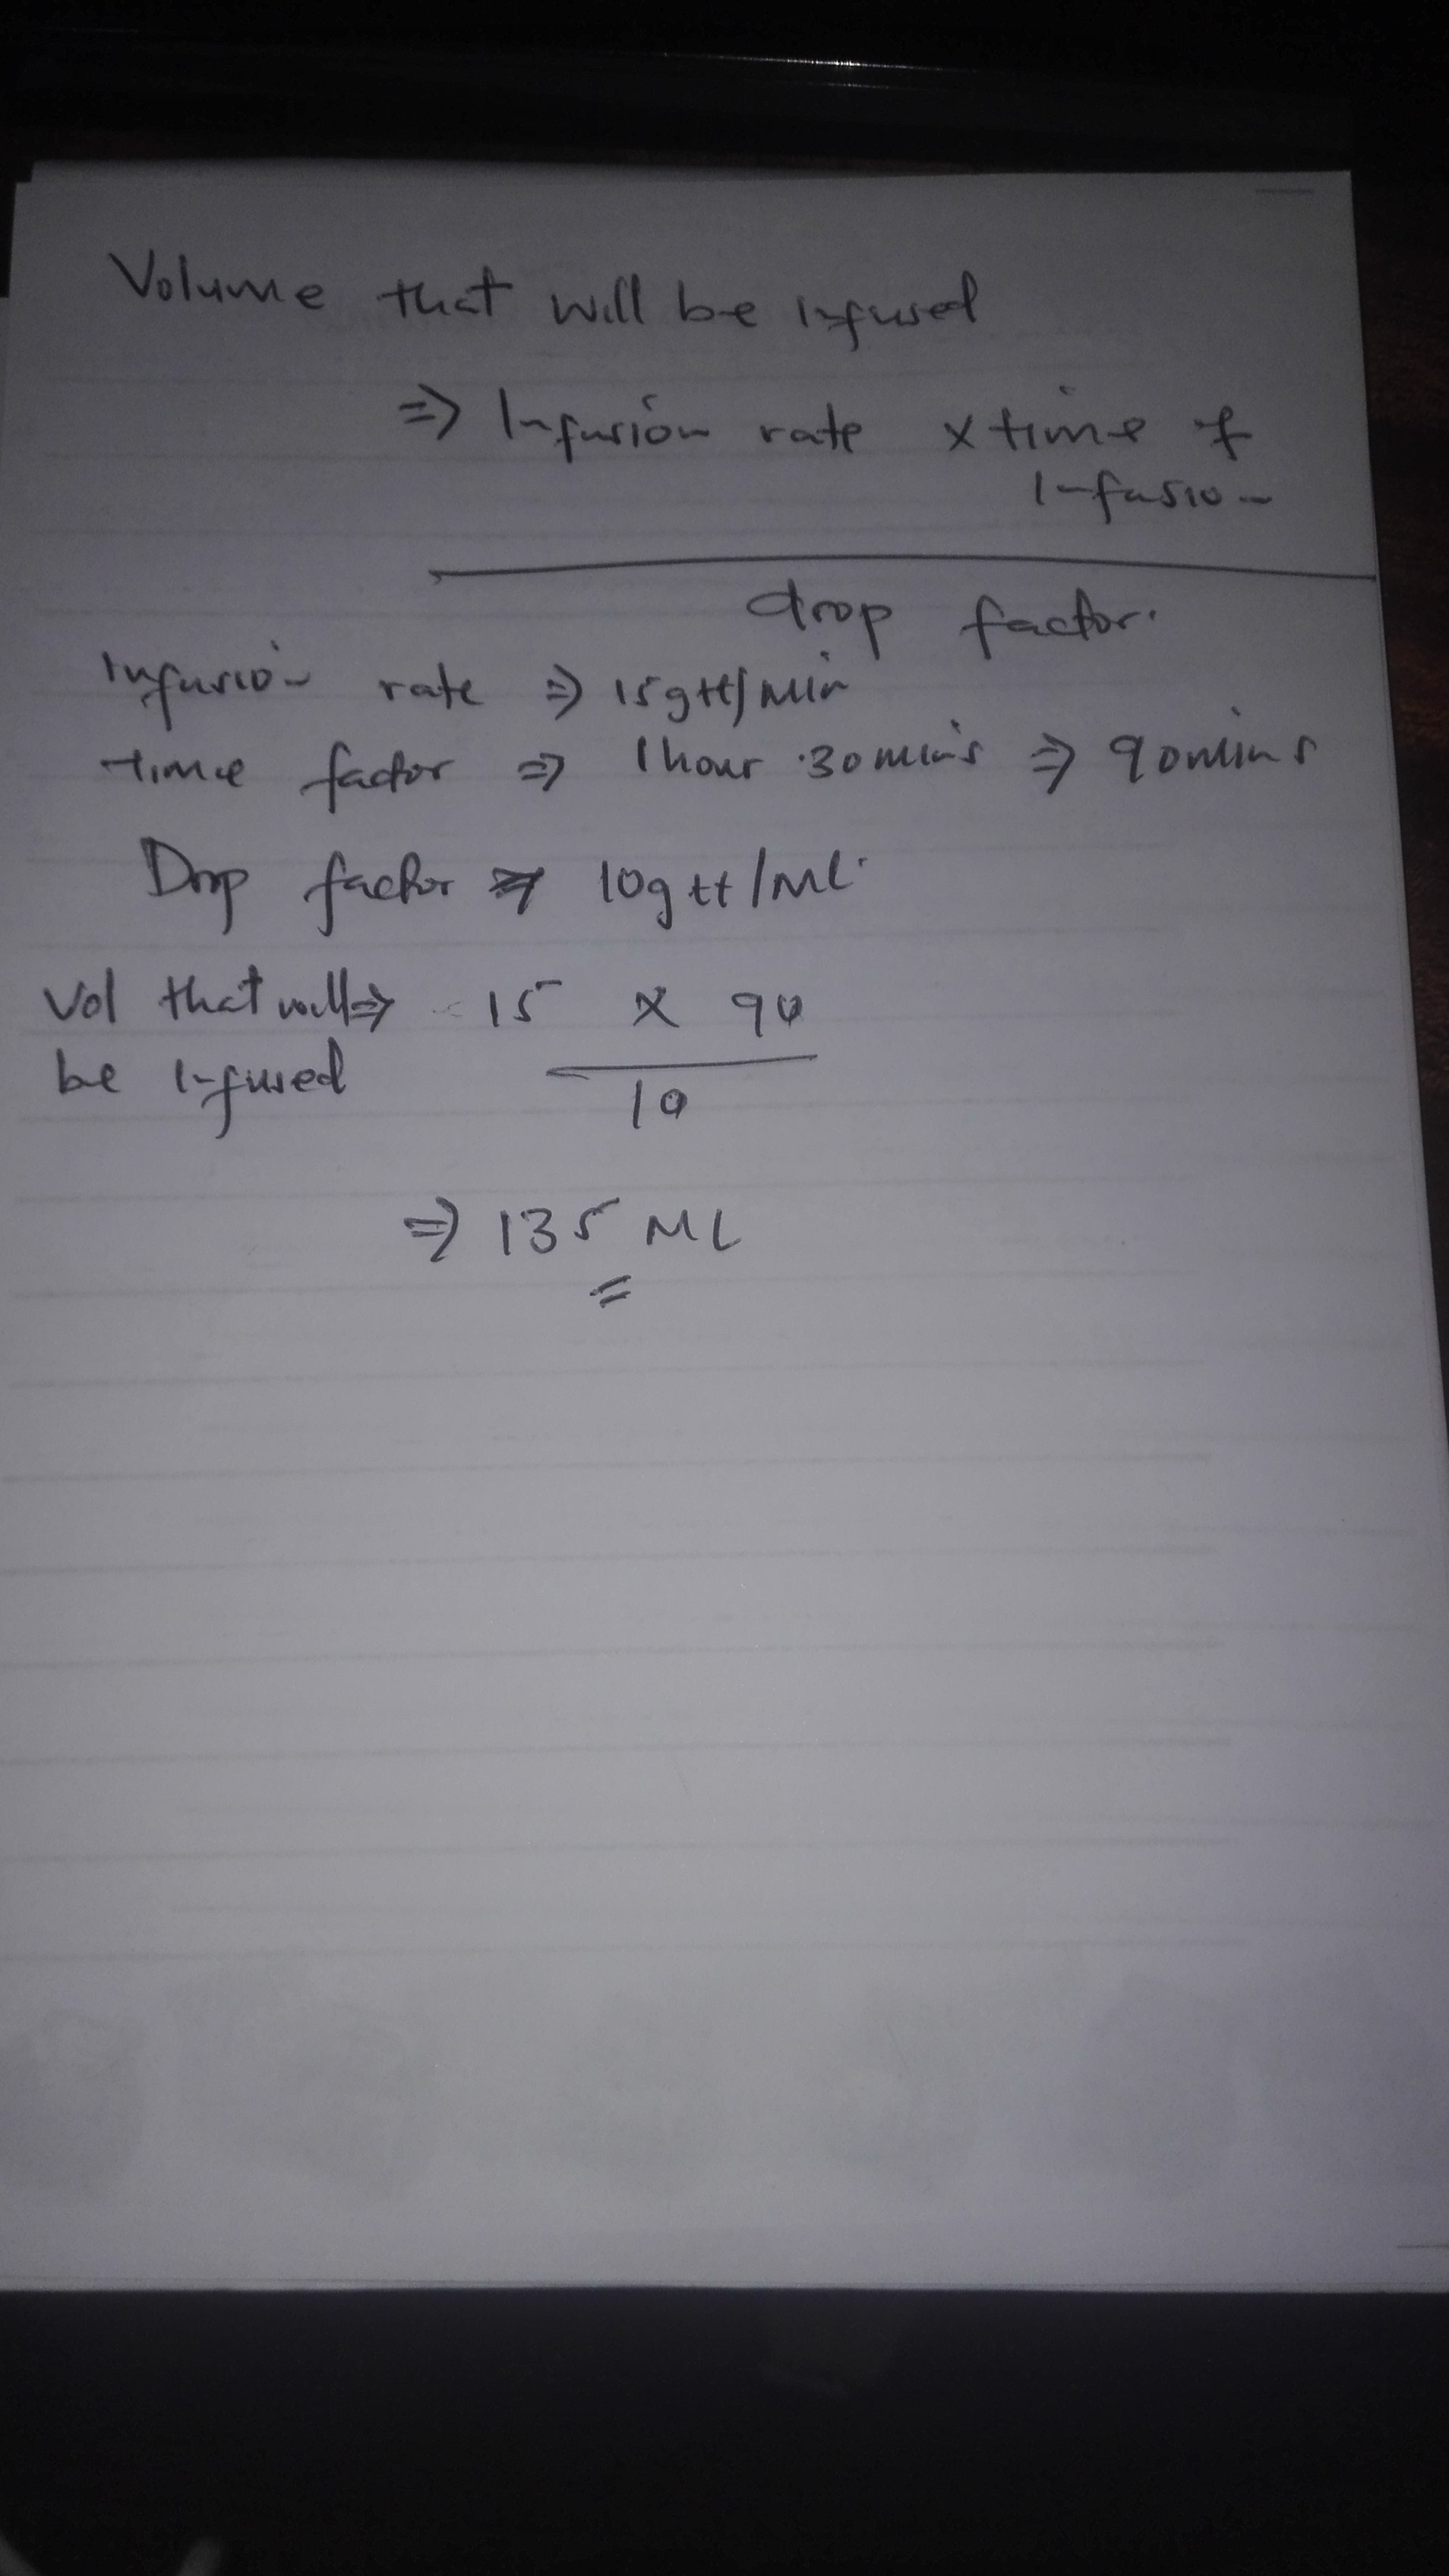 Volume that will be infused
=> Infusion rate x time of
Infusion
drop factor.
Infusion rate => 15gtt/min
time factor => 1 hour 30 mins => 90mins
Drop factor => 10gtt/ML.
Vol that will => 15 x 90
be Infused
10
=> 135 ML
=